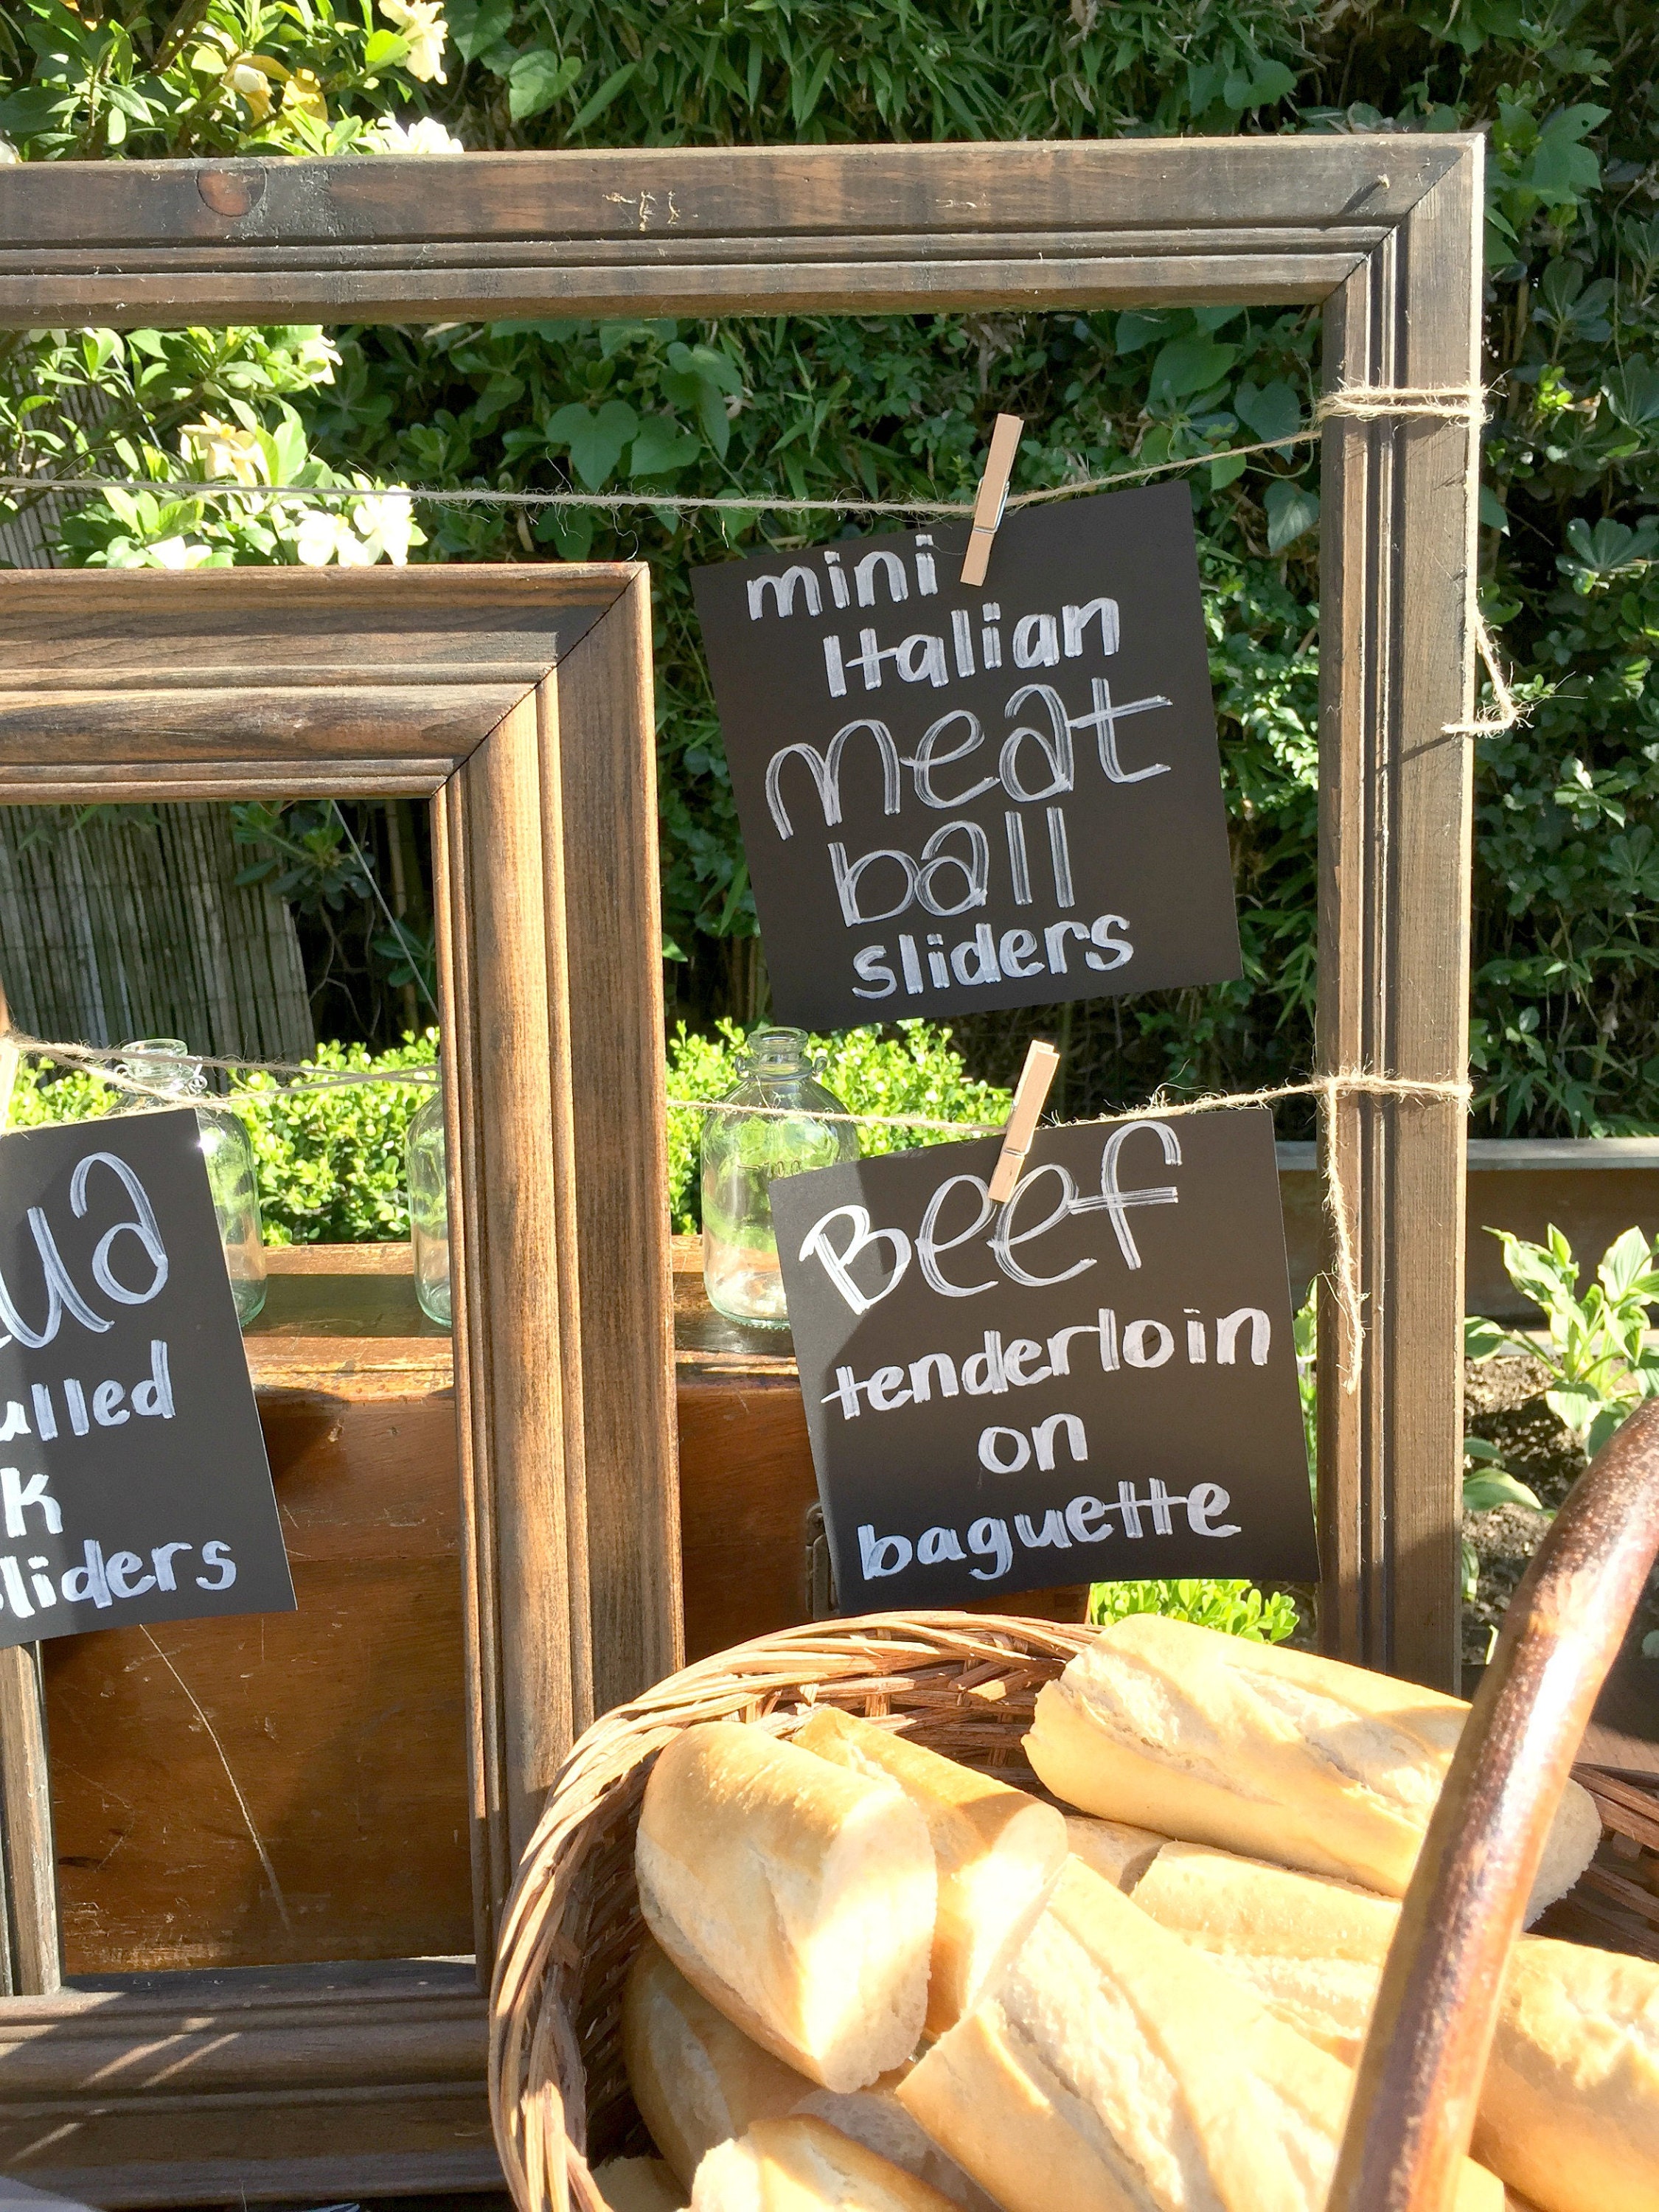 mini
Italian
meat
ball
sliders
Beef
tenderloin
on
baguette
sliders